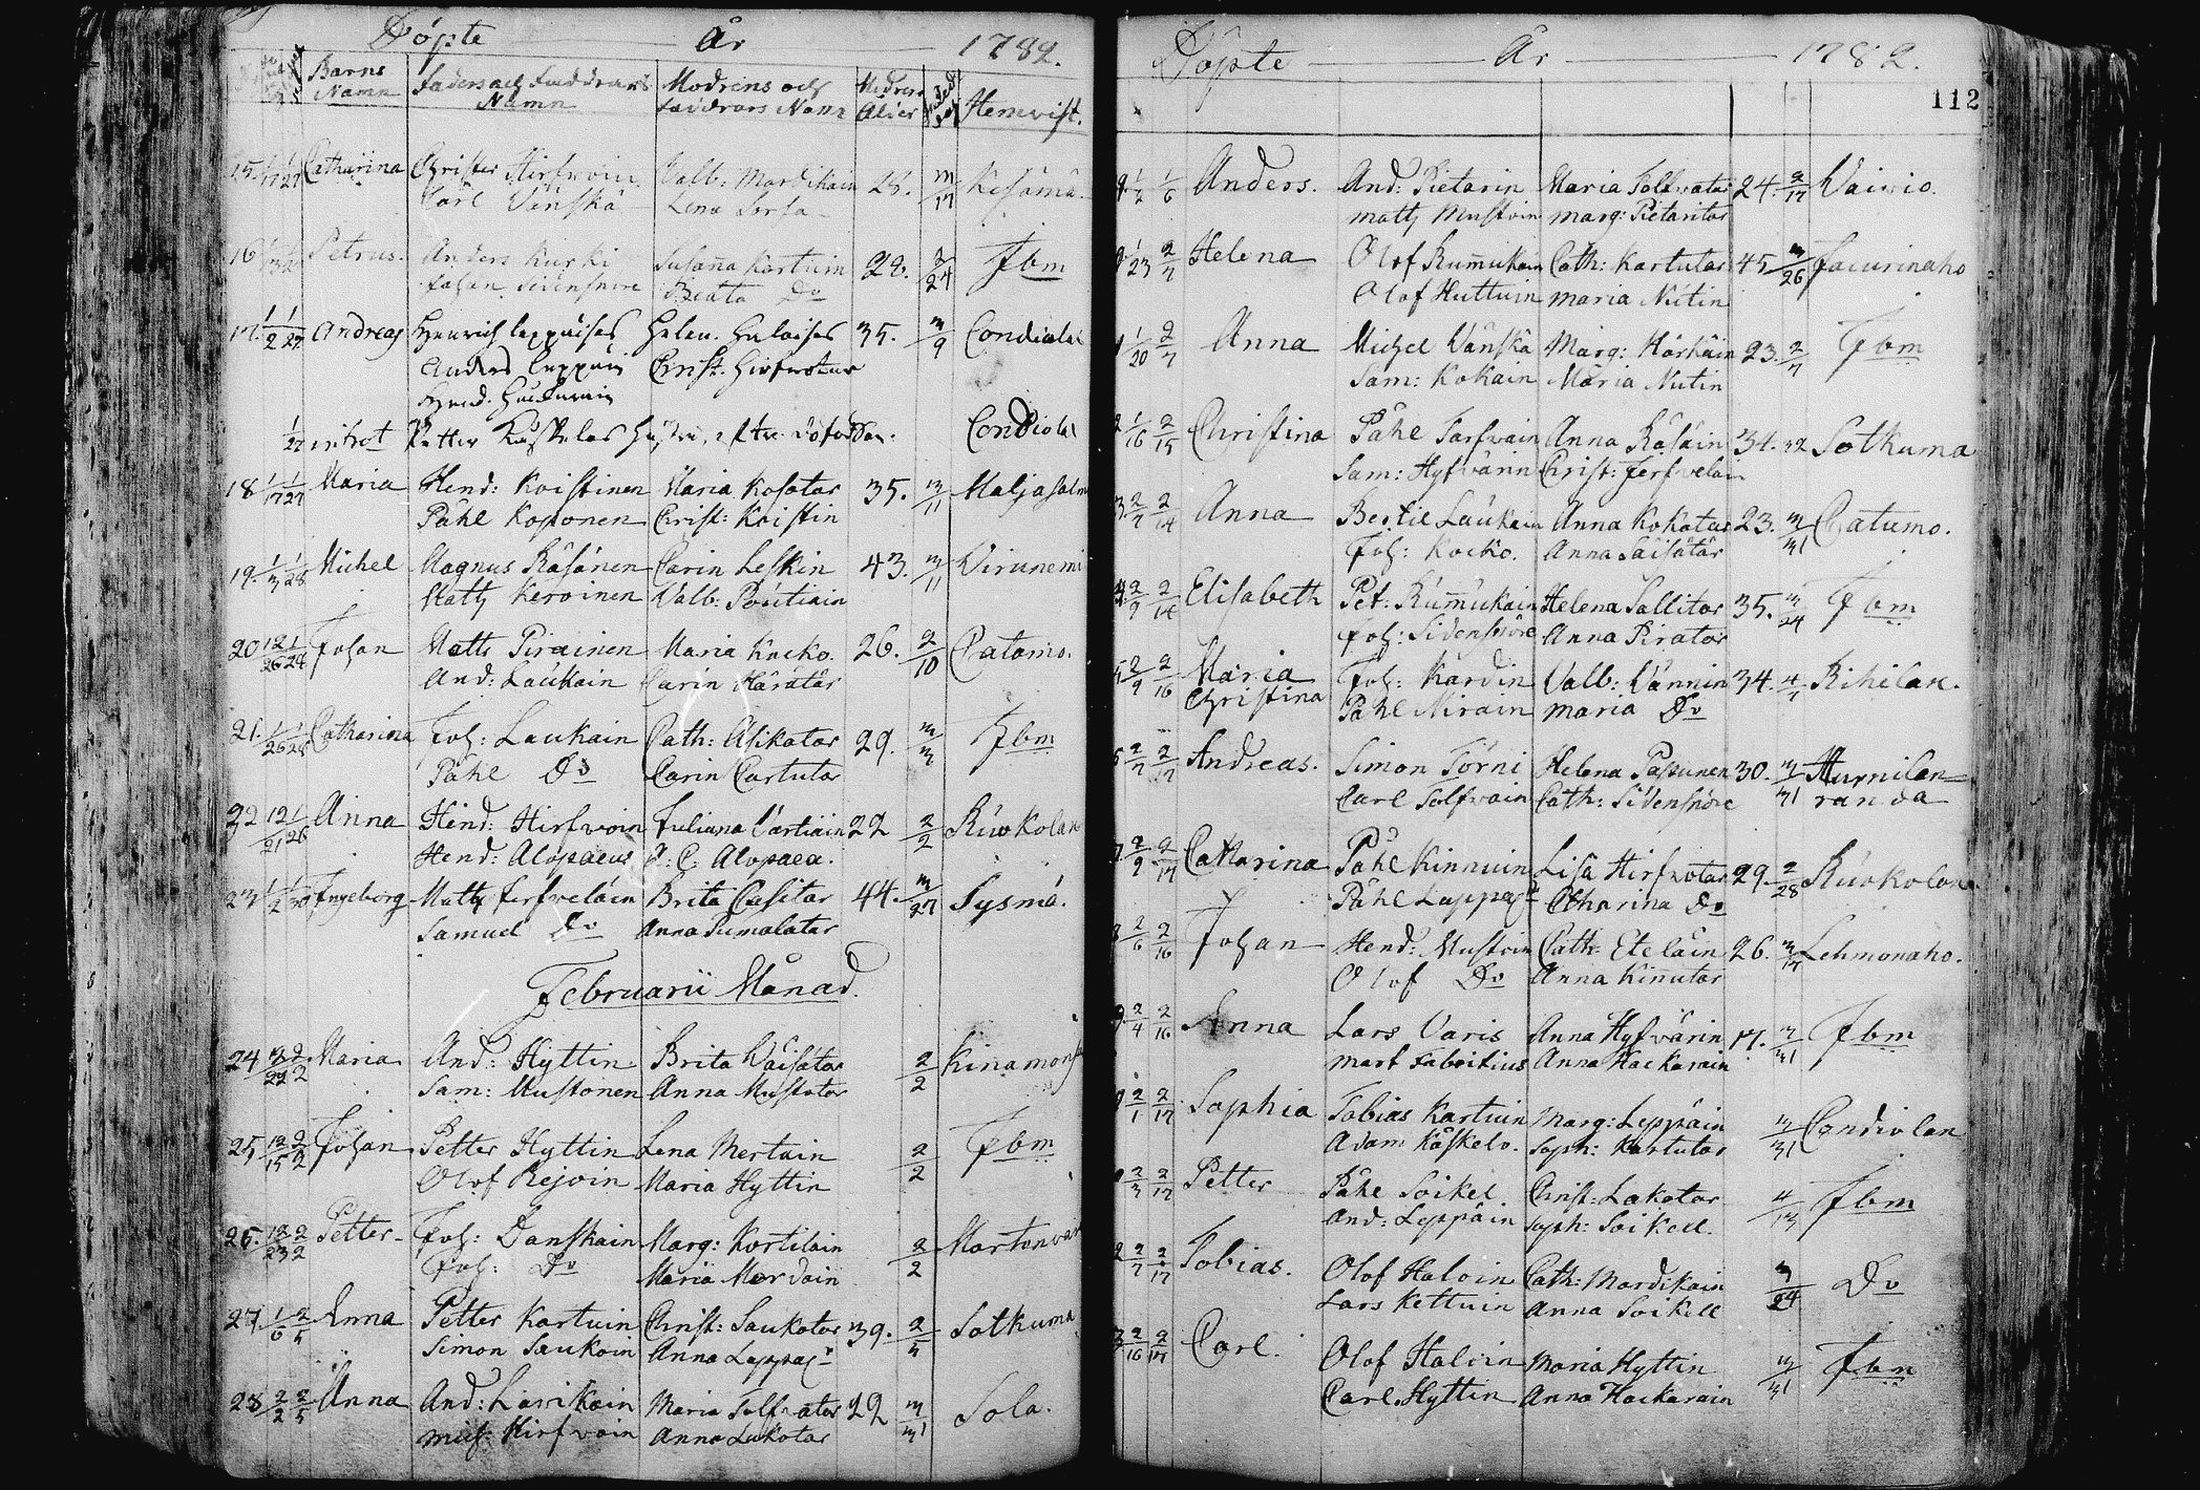 Döpte År 1782.
Barns Namn
Faders och Faddrars Namn
Modrens och Faddrars Namn
Modrens Ålder
Hemvist.
15 1/17 1/27 Catharina Christer Hirfvoin Valb: Mardikain 28. 3/17 Kesämä.
Carl Vänskä Lena Sorsa
16 Petrus. Anders Kurki Susanna Kartuin 28. 2/24 Ibm
Johan Sidensnöre Beata Do
17. 1/2 1/27 Andreas Henrich Leppäises Helen. Huloises 35. 3/9 Condiolax
Anders Leppäin Christ. Hirfvotar
1/27 introt Petter Käskelas Hustru, efter döfödder. Condiolax
18 1/17 1/27 Maria Hend: Koistinen Maria Kosotar 35. 3/11 Maljasalm
Påhl Koponen Christ: Koistin
19. 1/3 1/28 Michel Magnus Räsänen Carin Leskin 43. 3/11 Virunemi
Matts Keroinen Valb: Pontiain
20 12/26 1/28 Johan Matts Pirainen Maria Kocko. 26. 2/10 Catamo.
And: Laukain Carin Härätär
21. 1/26 1/28 Catharina Joh: Laukain Cath: Asikatar 29. 3/3 Ibm
Påhl Do Carin Cartutar
22 12/21 1/28 Anna Hend: Hirfvoin Juliana Vartiain 22 2/2 Ruokolax
Hend: Alopaeus A: C: Alopaea.
23 1/2 1/30 Ingeborg Matts Jerfveläin Brita Casitar 44. 3/27 Sysmä.
Samuel Do Anna Pumalatar
Februarii Månad.
24 12/22 2/2 Maria And: Hyttin Brita Väisätär 2/2 Kinamons
Sam: Mustonen Anna Mustotar
25 12/15 2/2 Johan Petter Hyttin Lena Mertain 2/2 Ibm
Olof Rejoin Maria Hyttin
26. 12/23 2/2 Petter Joh: Danskain Marg: Kortilain 2/2 Martonvar
Joh: Do Maria Mardain
27 1/6 2/5 Anna Petter Kartuin Christ: Saukotar 39. 2/5 Sotkuma
Simon Saukoin Anna Leppä
28 2/2 2/5 Anna And: Larikain Maria Tolfvatar 22 3/31 Sola.
Mich: Hirfvoin Anna Lukotar
Döpte År 1782.
112
9. 1/2 1/6 Anders. And: Pietarin Maria Tolfvatar 24. 2/17 Vaivio.
Matts Mustoin Marg: Pietaritar
1/23 2/7 Helena Olof Rummukain Cath: Kartutar 45 3/26 Jaurinaho
Olof Huttuin Maria Nutin
1/20 2/7 Anna Michel Vänskä Marg: Härkäin 23. 2/7 Ibm
Sam: Kokain Maria Nutin
1/16 2/15 Christina Påhl Tarfvain Anna Räsäin 34. Sotkuma
Sam: Hyfvärin Christ: Jerfvelain
2/7 2/14 Anna Bertil Laukain Anna Kokotar 23. 3/31 Catumo.
Joh: Kocko. Anna Säisätär
2/9 2/14 Elisabeth Pet: Rummukain Helena Sallitar 35. 3/24 Ibm
Joh: Sidensnöre Anna Piratar
2/9 2/16 Maria Joh: Kardin Valb: Vännin 34. Rihilax.
Christina Påhl Nirain Maria Do
2/7 2/17 Andreas. Simon Törni Helena Pasunen 30. 3/31 Hurnilan=
Carl Tolfvain Cath: Sidensnöre randa
2/9 2/17 Catharina Påhl Kinnuin Lisa Hirfvotar 29. 2/28 Ruokolax
Påhl Leppä Catharina Do
2/6 2/16 Johan Hend: Mustoin Cath: Eteläin 26. 3/17 Lehmonaho.
Olof Do Anna Kinnutar
2/4 2/16 Anna Lars Varis Anna Hyfvärin 17. 3/31 Ibm
Mart Fabritius Anna Hackarain
2/1 2/17 Sophia Tobias Kartuin Marg: Leppäin 3/31 Condiolax
Adam Käskelo. Soph: Kartutar
2/3 2/17 Petter Påhl Soikel. Christ: Lakotar 4/13 Ibm
And: Leppäin Soph: Soikell.
2/7 2/17 Tobias. Olof Haloin Cath: Mardikain 3/24 Do
Lars Kettuin Anna Soikell
2/16 2/17 Carl. Olof Haloin Maria Hyttin 3/31 Ibm
Carl Hyttin Anna Hackarain